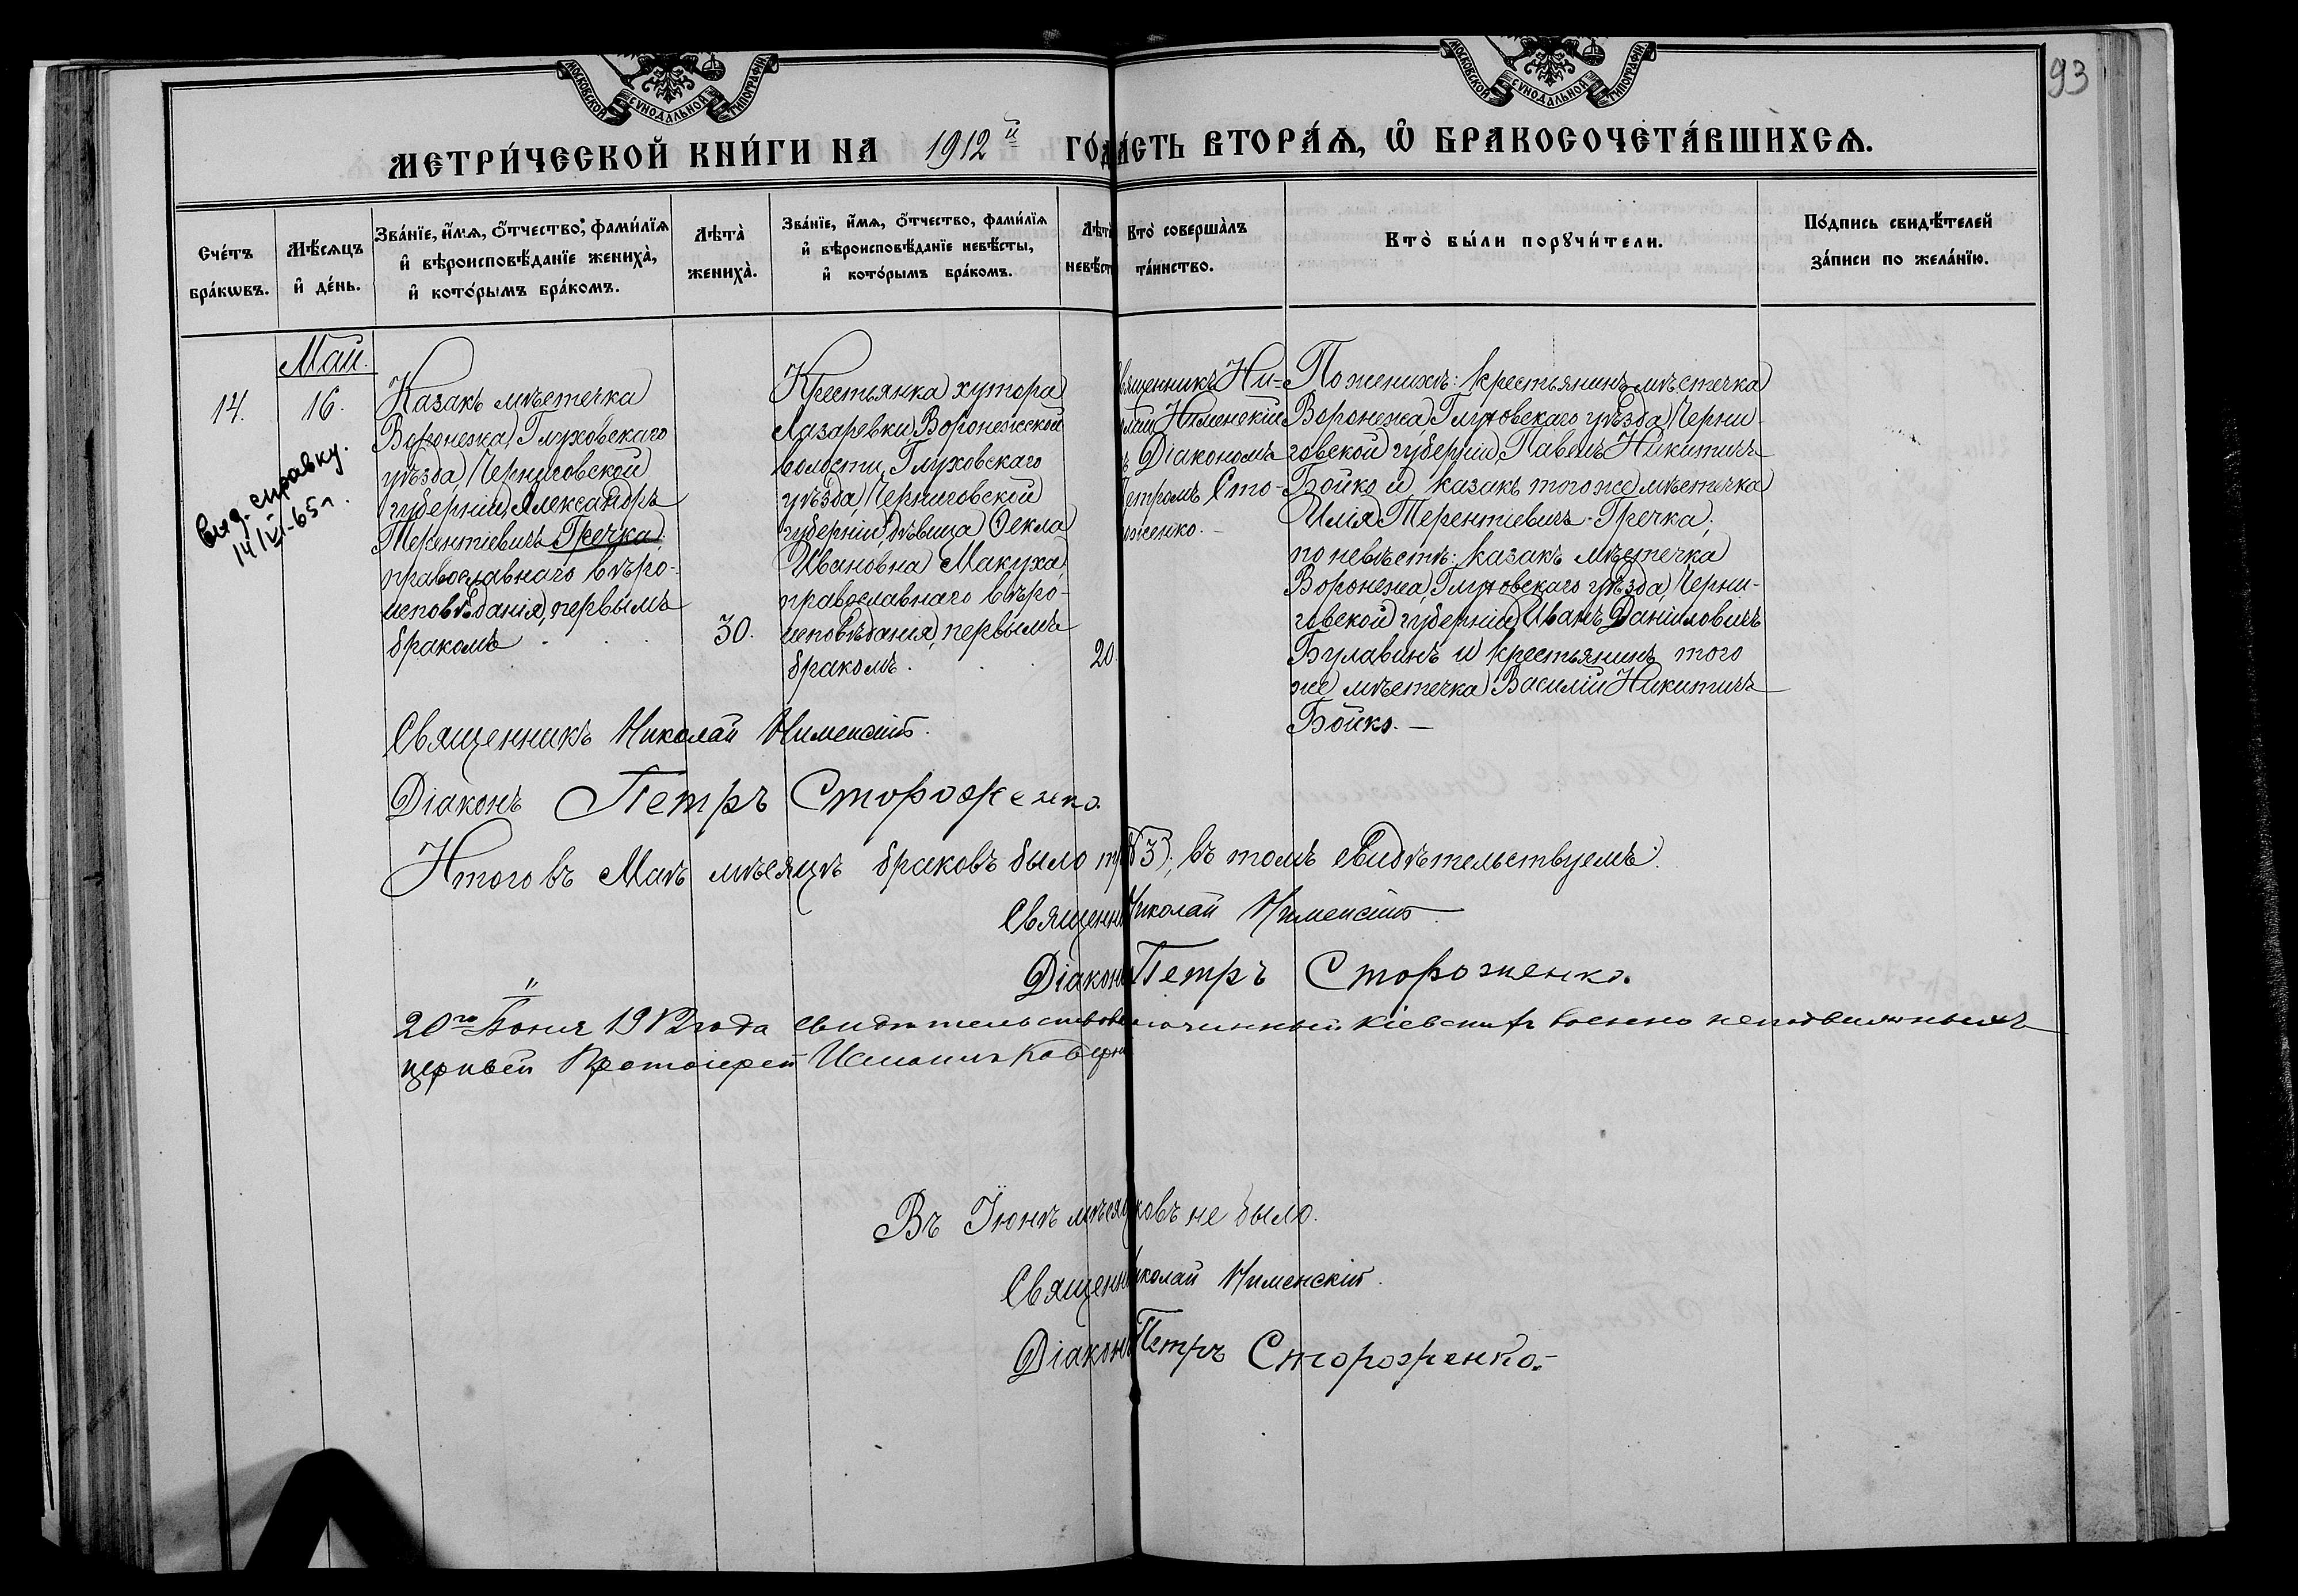 93
МОСКОВСКОЙ СѴНОДАЛЬНОЙ ТИПОГРАФІИ
МОСКОВСКОЙ СѴНОДАЛЬНОЙ ТИПОГРАФІИ
МЕТРИ́ЧЕСКОЙ КНИ́ГИ НА 1912й ГО́ДА
ЧА́СТЬ ВТОРА́Ѧ, Ѽ БРАКОСОЧЕТА́ВШИХСѦ.
Сче́тъ бра́кѡвъ.
Мѣ́сѧцъ и҆ де́нь.
Зва́нїе, и҆́мѧ, ѻ҆́тчество, фами́лїѧ и҆ вѣроисповѣ́данїе жениха̀, и҆ кото́рымъ бра́комъ.
Лѣта̀ жениха̀.
Зва́нїе, и҆́мѧ, ѻ҆́тчество, фами́лїѧ и҆ вѣроисповѣ́данїе невѣ́сты, и҆ кото́рымъ бра́комъ.
Лѣта̀ невѣ́ст
Кто̀ соверша́лъ та́инство.
Кто̀ бы́ли порꙋчи́тели.
По́дпись свидѣ́телей за́писи по жела́нїю.
Май.
14.
16.
выд. справку.
14/VI-65 г.
Казакъ мѣстечка
Воронежа, Глуховскаго
уѣзда, Черниговской
губерніи, Александръ
Терентіевичъ Гречка,
православнаго вѣро-
исповѣданія, первымъ
бракомъ
30.
Крестьянка хутора
Лазаревки, Воронежской
волости, Глуховскаго
уѣзда, Черниговской
губерніи, дѣвица Ѳекла
Ивановна Макуха,
православнаго вѣро-
исповѣданія, первымъ
бракомъ.
20
вященникъ Ни-
лай Нименскій
ъ Діакономъ
Петромъ Сто-
роженко. -
По женихѣ: крестьянинъ мѣстечка
Воронежа, Глуховскаго уѣзда, Черни-
говской губерніи, Павелъ Никитичъ
Бойко и казакъ того же мѣстечка
Илія Терентіевичъ Гречка;
по невѣстѣ: казакъ мѣстечка
Воронежа, Глуховскаго уѣзда, Черни-
говской губерніи, Иванъ Даниловичъ
Булавинъ и крестьянинъ того
же мѣстечка Василій Никитичъ
Бойко. —
Священникъ Николай Нименскій.
Діаконъ Петръ Стороженко.
Итого въ Маѣ мѣсяцѣ браковъ было три (3); въ томъ свидѣтельствуемъ:
Священн Николай Нименскій.
Діаконъ Петръ Стороженко.
20го Іюня 1912 года свидѣтельствов очинный Кіевскихъ военно неподвижныхъ
церквей Протоіерей
Въ Іюнѣ мѣсяц ковъ не было.
Священн иколай Нименскій.
Діаконъ Петръ Стороженко.-